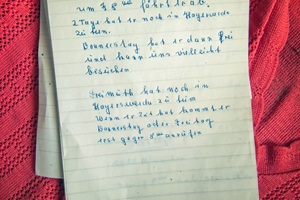 um 8 00 fährt er ab.
2 Tage hat er noch in Hoyerswerda
zu tun.
Donnerstag hat er dann frei
und kann uns vielleicht
besuchen
Freimuth hat noch in
Hoyerswerda zu tun
Wenn er Zeit hat kommt er
Donnerstag oder Freitag
erst gegen 8 00 anrufen